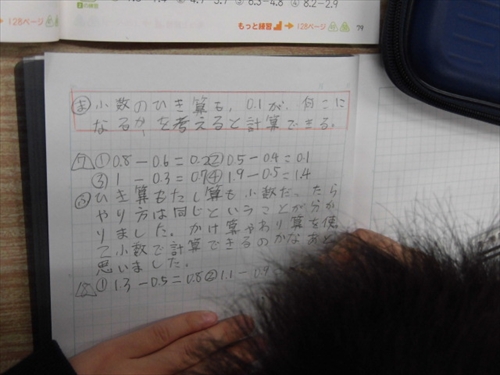 の練習 ③ 6.3-4.8 ④ 8.2-2.9
もっと練習 ➡ 128ページ
79
128ページ
ま 小数のひき算も、0.1が、何こに
なるかを考えると計算できる。
① 0.8-0.6=0.2 ② 0.5-0.4=0.1
③ 1-0.3=0.7 ④ 1.9-0.5=1.4
ひき算もたし算も小数だったら
やり方は同じということが分か
りました。かけ算やわり算を使
って小数で計算できるのかなあと
思いました。
① 1.3-0.5=0.8 ② 1.1-0.9